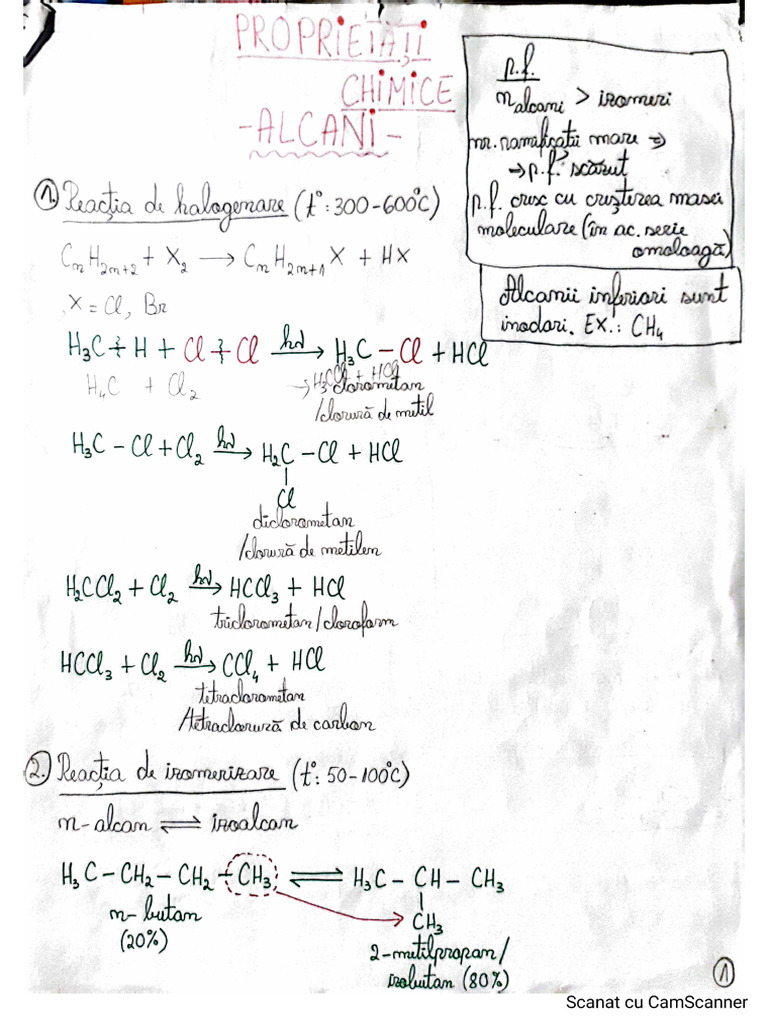 PROPRIETĂȚI
CHIMICE
-ALCANI-
p.f.
n alcani > izomeri
nr. ramificații mare ⇒
→ p.f. scăzut
p.f. cresc cu creșterea masei
moleculare (în ac. serie
omoloagă)
Alcanii inferiori sunt
inodori. Ex.: CH₄
1. Reacția de halogenare (t°: 300-600°C)
CₙH₂ₙ₊₂ + X₂ → CₙH₂ₙ₊₁X + HX
X = Cl, Br
H₃C-H + Cl-Cl hν→ H₃C-Cl + HCl
H₄C + Cl₂ → H₃CCl + HCl
clorometan
/clorură de metil
H₃C-Cl + Cl₂ hν→ H₂C-Cl + HCl
|
Cl
diclorometan
/clorură de metilen
H₂CCl₂ + Cl₂ hν→ HCCl₃ + HCl
triclorometan/cloroform
HCCl₃ + Cl₂ hν→ CCl₄ + HCl
tetraclorometan
/tetraclorură de carbon
2. Reacția de izomerizare (t°: 50-100°C)
n-alcan ⇌ izoalcan
H₃C-CH₂-CH₂-CH₃ ⇌ H₃C-CH-CH₃
|
CH₃
n-butan
(20%)
2-metilpropan/
izobutan (80%)
1
Scanat cu CamScanner